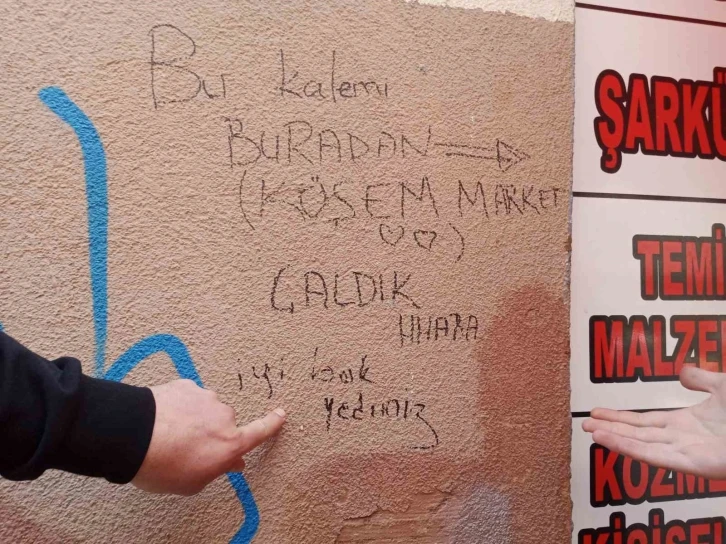 Bu kalemi
BURADAN
(KÖŞEM MARKET
)
ÇALDIK
iyi bok
yediniz
ŞARKÜ
TEMİ
MALZEM
KOZME
KİŞİSEL